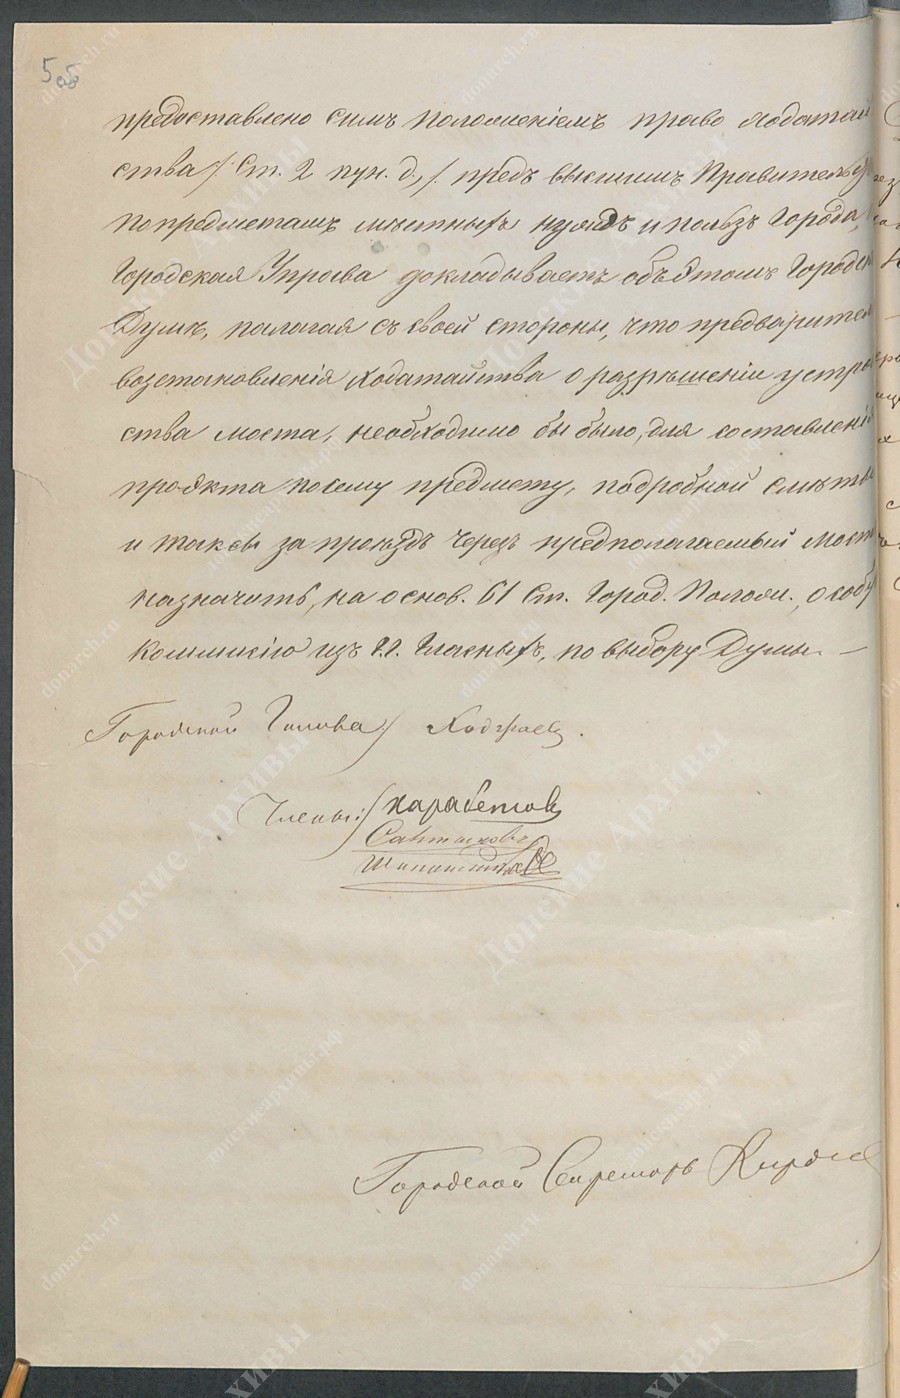 5 об
предоставлено симъ положеніемъ право ходатай
ства /: Ст. 2 пун. д., /. предъ высшимъ Правительс
по предметамъ мѣстныхъ нуждъ и пользъ Города,
Городская Управа докладываетъ объ этомъ Городск
Думѣ, полагая съ своей стороны, что предварител
возстановленія ходатайства о разрѣшеніи устро
ства моста, необходимо бы было, для составленія
проэкта по сему предмету, подробной смѣты
и таксы за проѣздъ черезъ предполагаемый мостъ
назначить, на основ. 61 Ст. Город. Полож., особу
коммисію изъ г.г. Гласныхъ, по выбору Думы. —
Городской Голова / Ходжаевъ.
Члены: /
Городской Секретарь